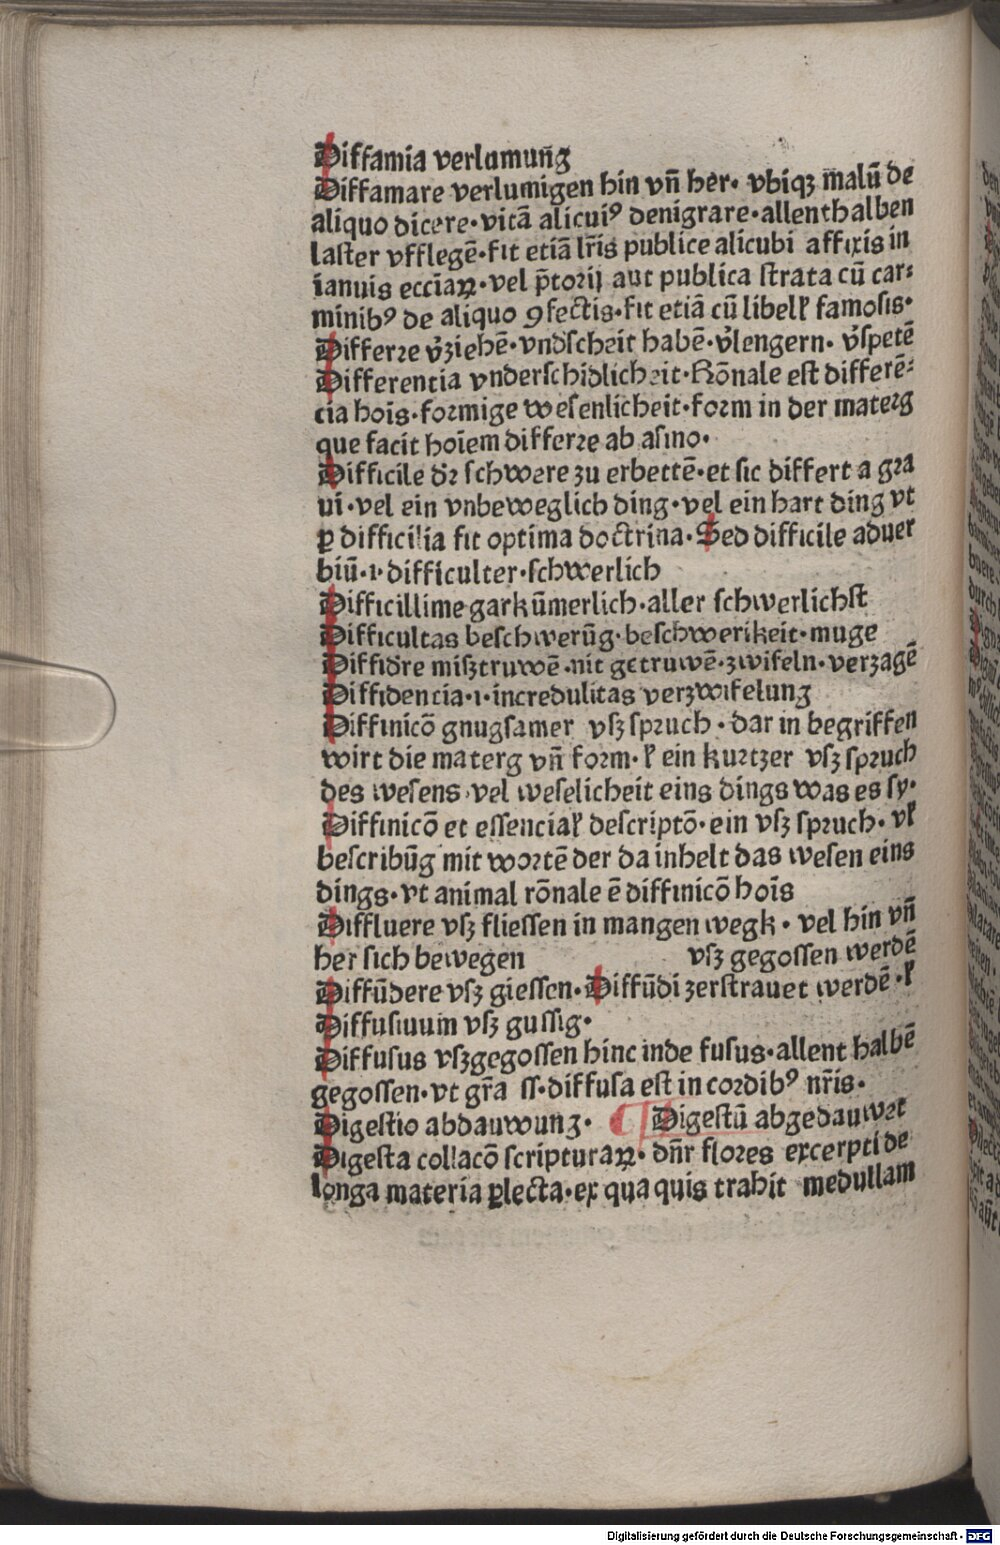 Diffamia verlumun̄g
Diffamare verlumigen hin vn̄ her· vbiqꝫ malū de
aliquo dicere·vitā alicuiꝰ denigrare·allenthalben
laſter vfflegē·fit etiā lr̄is publice alicubi affixis in
ianuis eccīaꝝ·vel p̄torij aut publica ſtrata cū car⸗
minibꝰ de aliquo ꝯfectis·fit etiā cū libell' famoſis·
Differre v̓ziehē·vndſcheit habē·v̓lengern· v̓ſpetē
Differentia vnderſchidlicheit·Rōnale eſt differē⸗
cia hoīs·formige weſenlicheit·form in der materg
que facit hoīem differre ab aſino·
Difficile dr̄ ſchwere zu erbettē·et ſic differt a gra
ui·vel ein vnbeweglich ding·vel ein hart ding vt
ꝑ difficilia fit optima doctrina·Sed difficile aduer
biū·i·difficulter·ſchwerlich
Difficillime gar kūmerlich·aller ſchwerlichſt
Difficultas beſchwerūg·beſchwerikeit·muge
Diffidēre miſztruwē·nit getruwē·zwifeln·verzagē
Diffidencia·i·incredulitas verzwifelung
Diffinicō gnugſamer vſz ſpruch·dar in begriffen
wirt die materg vn̄ form·l' ein kurtzer vſz ſpruch
des weſens·vel weſelicheit eins dings was es ſy·
Diffinicō et eſſencial' deſcriptō·ein vſz ſpruch·vl'
beſcribūg mit wortē der da inhelt das weſen eins
dings·vt animal rōnale ē diffinicō hoīs
Diffluere vſz flieſſen in mangen wegk·vel hin vn̄
her ſich bewegen vſz gegoſſen werdē
Diffūdere vſz gieſſen·Diffūdi zerſtrauet werdē·l'
Diffuſiuum vſz guſſig·
Diffuſus vſzgegoſſen hinc inde fuſus·allent halbē
gegoſſen·vt gr̄a ſſ·diffuſa eſt in cordibꝰ nr̄is·
Digeſtio abdauwung· ¶ Digeſtū abgedauwet
Digeſta collacō ſcripturaꝝ·dn̄r flores excerpti de
longa materia ꝑlecta·ex qua quis trahit medullam
Digitalisierung gefördert durch die Deutsche Forschungsgemeinschaft - DFG